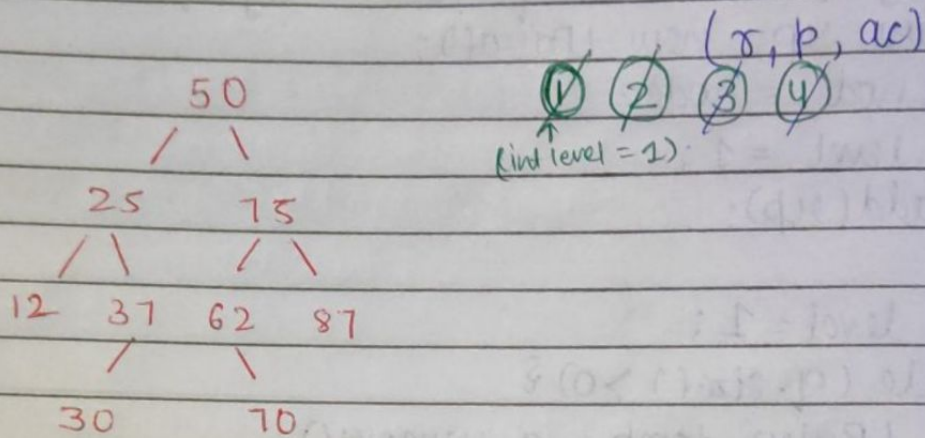 (r, p, ac)
50 1 2 3 4
(int level = 1)
25 75
12 37 62 87
30 70